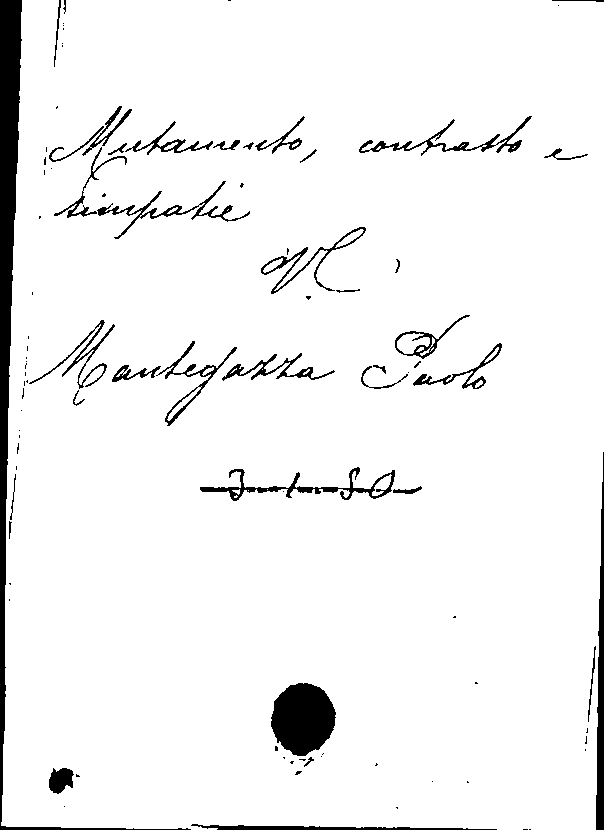 Mutamento, contrasto e
simpatie
V.
Mantegazza Paolo